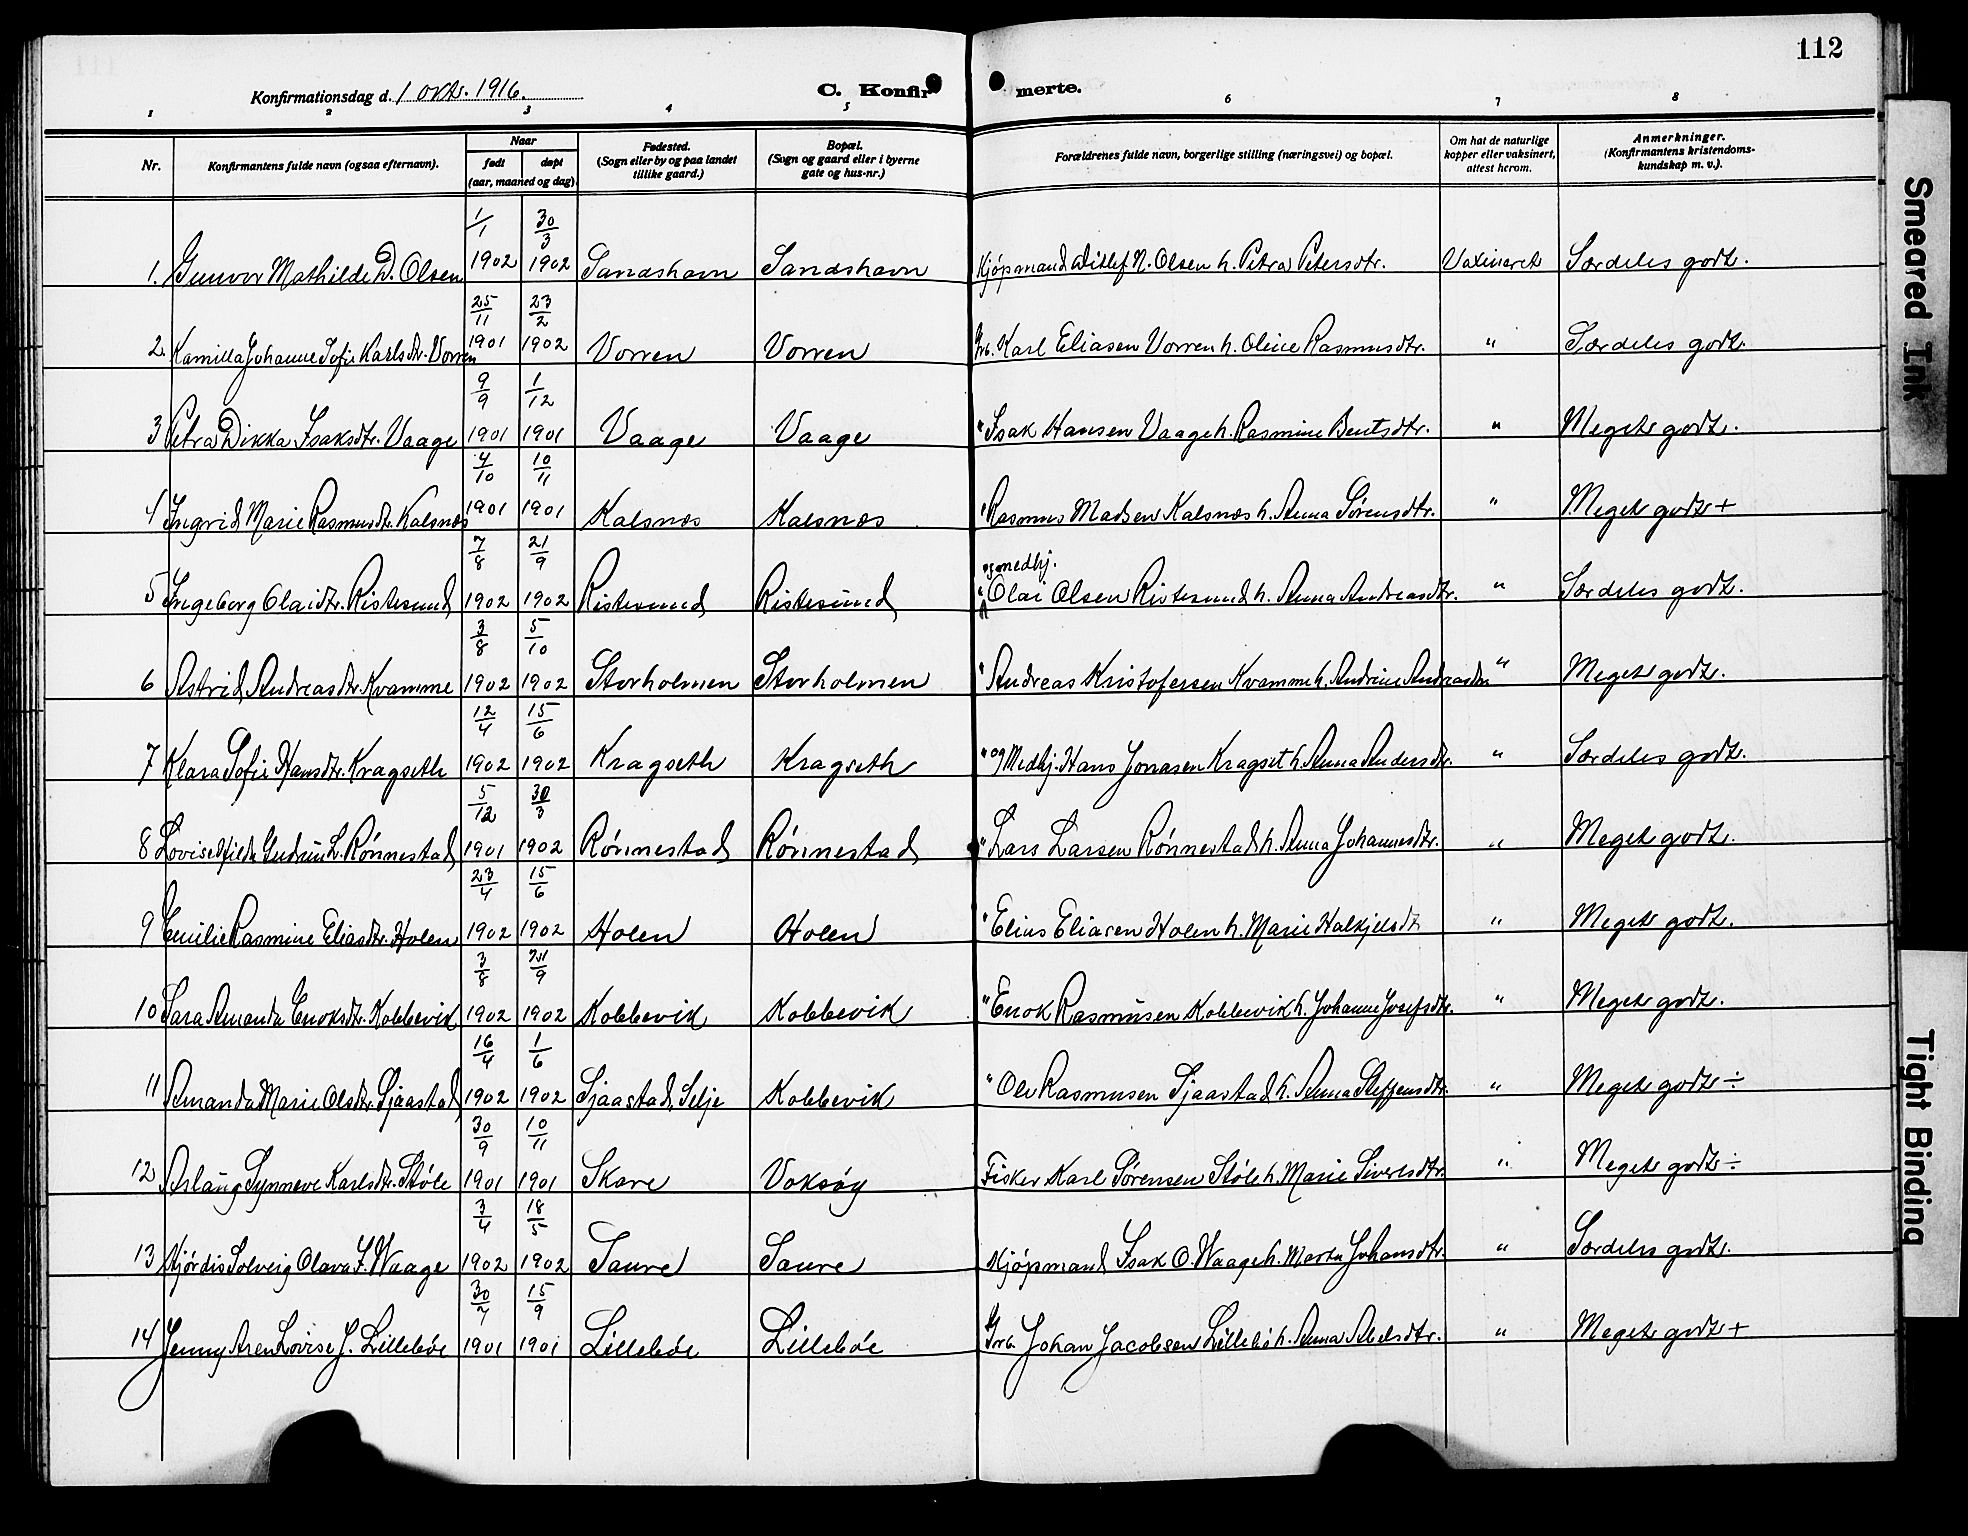 112
Konfirmationsdag d. 1 okt. 1916.
C. Konfirmerte.
1 2 3 4 5 6 7 8
Nr. Konfirmantens fulde navn (ogsaa efternavn). Naar født døpt (aar, maaned og dag) Fødested. (Sogn eller by og paa landet tillike gaard.) Bopæl. (Sogn og gaard eller i byerne gate og hus-nr.) Forældrenes fulde navn, borgerlige stilling (næringsvei) og bopæl. Om hat de naturlige kopper eller vaksinert, attest herom. Anmerkninger. (Konfirmantens kristendomskundskap m. v.).
1/1 30/3
1. Gunvor Mathilde D. Olsen 1902 1902 Sandshavn Sandshavn Kjøpmand Ditlef N. Olsen h. Petra Petersdtr. Vaxineret Særdeles godt.
25/11 23/2
2. Kamilla Johanne Sofie Karlsdtr. Vorren 1901 1902 Vorren Vorren Grb. Karl Eliasen Vorren h. Oline Rasmusdtr. " Særdeles godt.
9/9 1/12
3 Petra Dikka Isaksdtr. Vaage 1901 1901 Vaage Vaage " Isak Hansen Vaage h. Rasmine Bentsdtr. " Meget godt.
4/10 10/11
4 Ingrid Marie Rasmusdtr. Kalsnæs 1901 1901 Kalsnæs Kalsnæs " Rasmus Madsen Kalsnæs h. Anna Sørensdtr. " Meget godt +
7/8 21/9 og medhj.
5 Ingeborg Olaidtr. Ristesund 1902 1902 Ristesund Ristesund " Olai Olsen Ristesund h. Anna Andreasdtr. " Særdeles godt.
3/8 5/10
6 Astrid Andreasdtr. Kvamme 1902 1902 Storholmen Storholmen " Andreas Kristofersen Kvamme h. Andrine Andreasdtr. " Meget godt.
12/4 15/6
7 Klara Sofie Hansdtr. Kragseth 1902 1902 Kragseth Kragseth " og Medhj. Hans Jonasen Kragset h. Anna Andersdtr. " Særdeles godt.
5/12 30/3
8 Lovise Hilda Gudrun L. Rønnestad 1901 1902 Rønnestad Rønnestad " Lars Larsen Rønnestad h. Anna Johannesdtr. " Meget godt.
23/4 15/6
9 Emilie Rasmine Eliasdtr. Holen 1902 1902 Holen Holen " Elias Eliasen Holen h. Marie Halkjelsdtr " Meget godt.
3/8 21/9
10 Sara Amanda Enoksdtr. Kobbevik 1902 1902 Kobbevik Kobbevik " Enok Rasmusen Kobbevik h. Johanne Josefsdtr. " Meget godt.
16/4 1/6
11 Amanda Marie Olsdtr. Sjaastad 1902 1902 Sjaastad, Selje Kobbevik " Ole Rasmusen Sjaastad h. Anna Steffensdtr. " Meget godt ÷
30/9 10/11
12 Aslaug Synneve Karlsdtr. Støle 1901 1901 Skare Voksøy Fisker Karl Sørensen Støle h. Marie Sivertsdtr. " Meget godt ÷
3/4 18/5
13 Hjørdis Solveig Olava I. Waage 1902 1902 Saure Saure Kjøpmand Isak O. Waage h. Marta Johansdtr. " Særdeles godt.
30/7 15/9
14 Jenny Aren Lovise J. Lillebøe 1901 1901 Lillebøe Lillebøe Grb. Johan Jacobsen Lillebø h. Anna Abelsdtr. " Meget godt +
Smeared Ink
Tight Binding